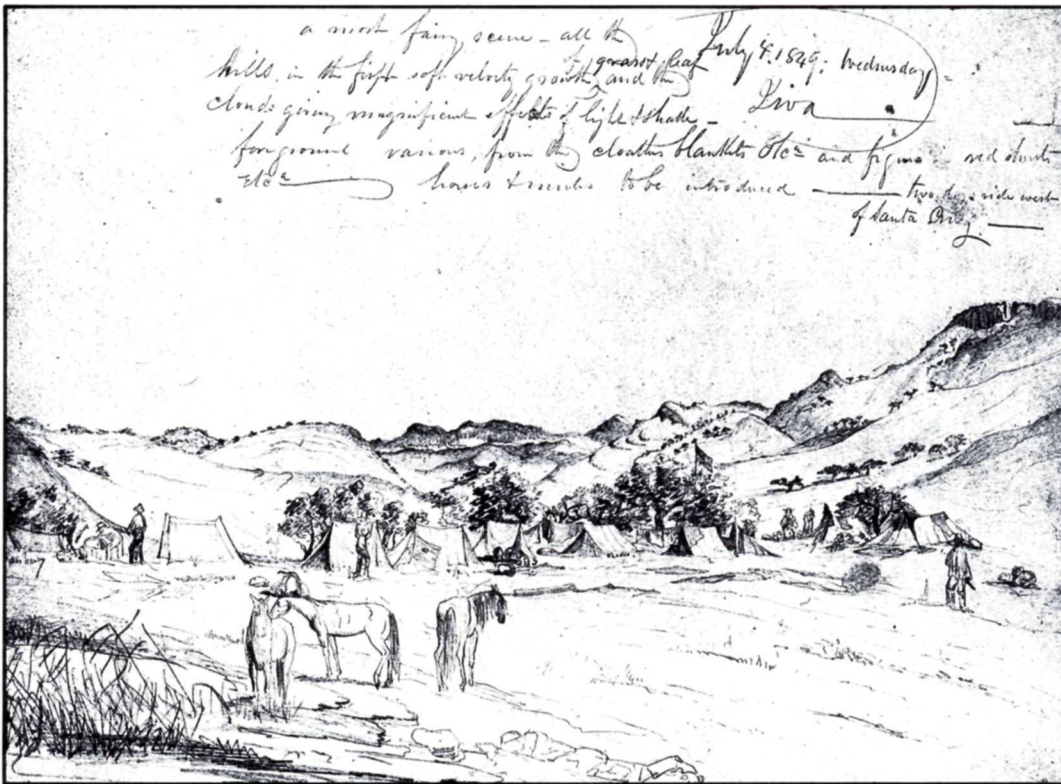 a most fairy scene - all the
July 4. 1849. Wednesday -
hills in the first soft velvety growth of grass & leaf and the
clouds giving magnificent effects of light & shade -
foreground various, from the cloathes blankets etc and figures red shirts
etc horses & mules to be introduced two days ride west
of Santa Cruz.